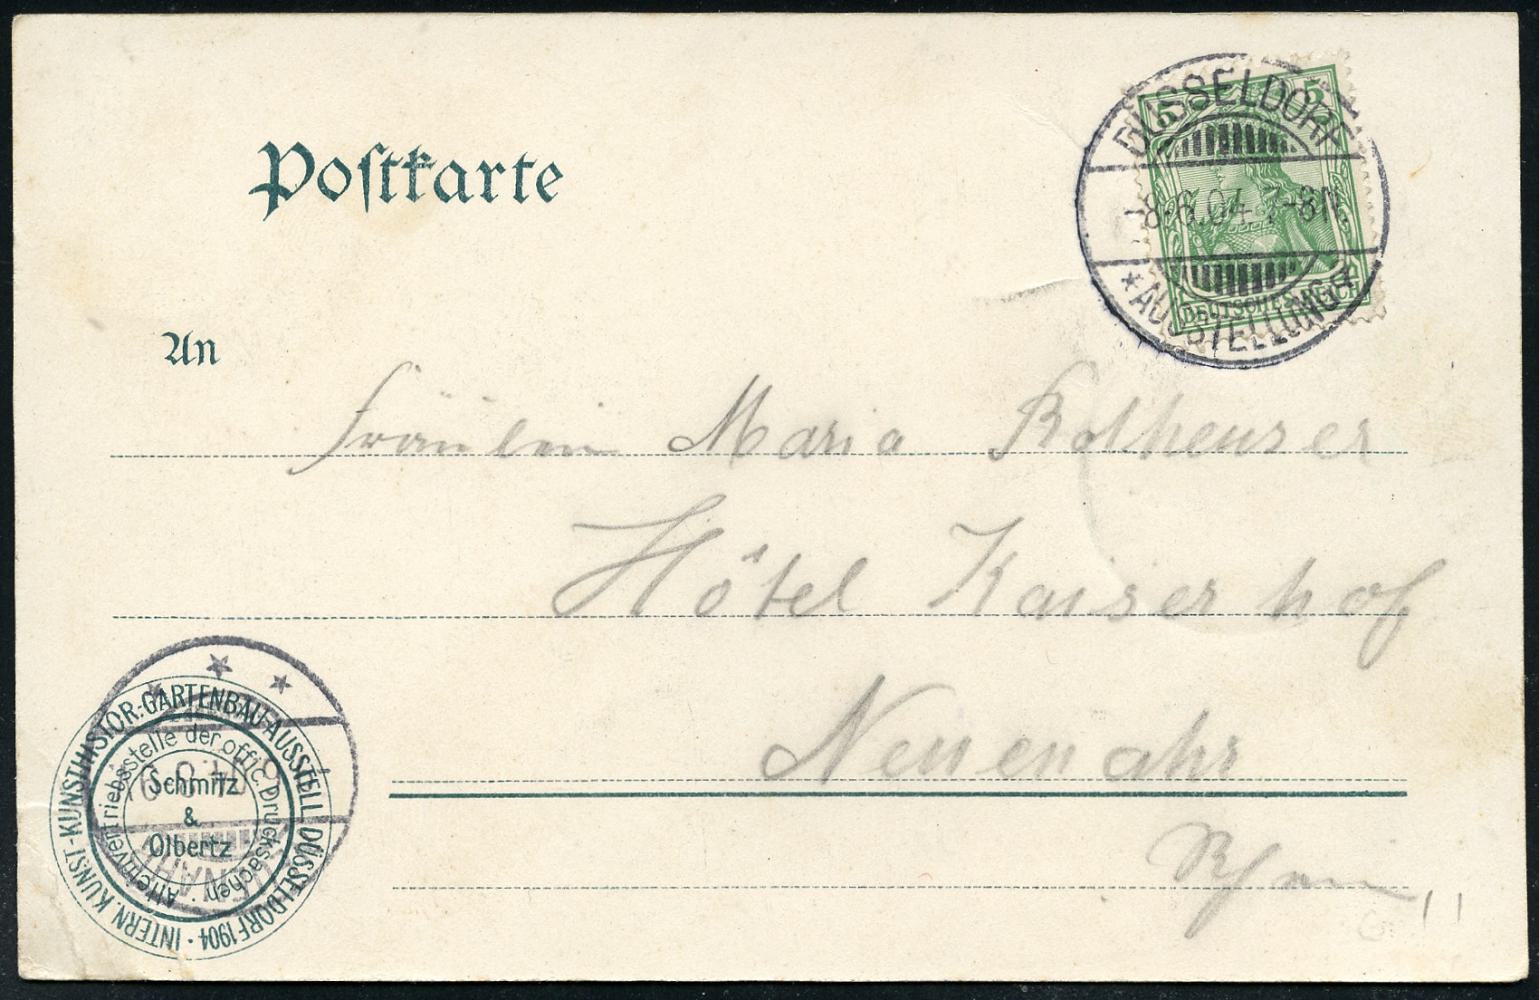 Postkarte
5 5
DEUTSCHES REICH
DÜSSELDORF
8.6.04.7-8N.
* AUSSTELLUNG *
An
Fräulein Maria Rotheuser
Hôtel Kaiserhof
Neuenahr
Rhein
INTERN. KUNST-KUNSTHISTOR.-GARTENBAU-AUSSTELL DÜSSELDORF 1904 ·
Alleinvertriebsstelle der offic. Drucksachen
Schmitz
&
Olbertz